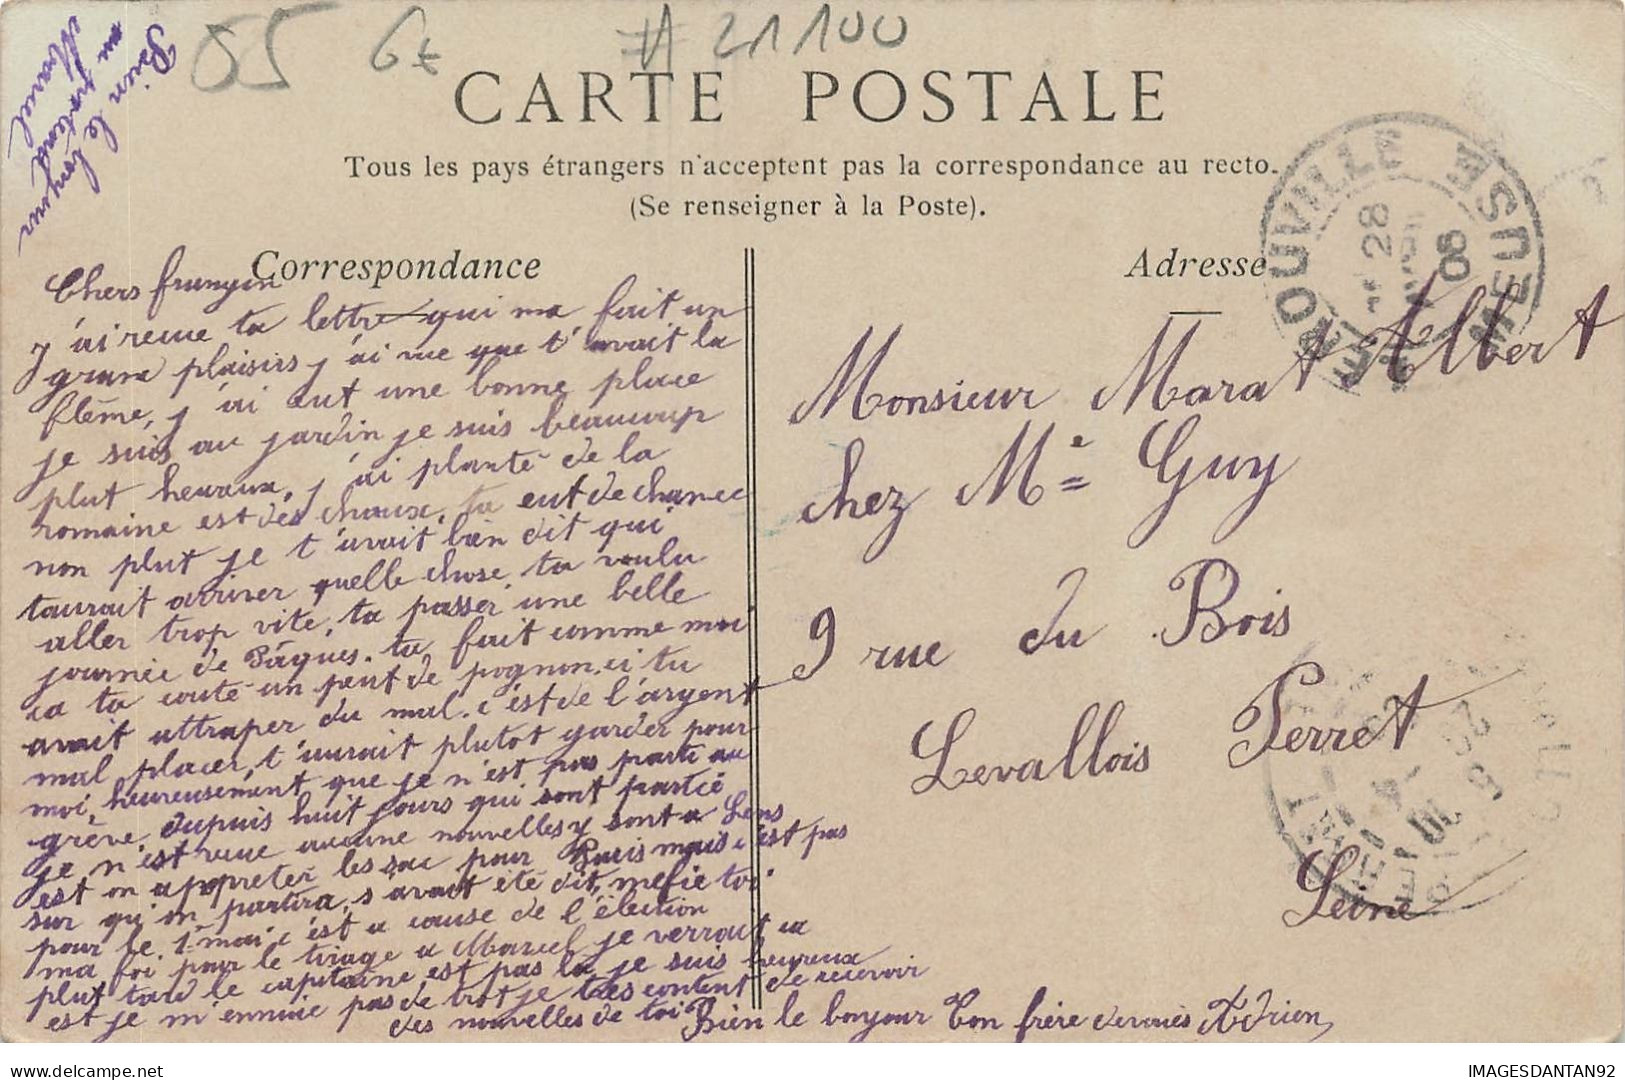 55 6€ # 21100
Bien le bonjour
au potend
Marcel
CARTE POSTALE
Tous les pays étrangers n'acceptent pas la correspondance au recto.
(Se renseigner à la Poste).
Correspondance
Adresse
EROUVILLE MEUSE
28
08
Chers frangin
j'ai reçue ta lettre qui ma fait un
grand plaisirs j'ai vue que t'avait la
flème, j'ai eut une bonne place
je suis au jardin je suis beaucoup
plut heureux, j'ai planté de la
romaine est des choux, ta eut de chance
non plut je t'avait bien dit qui
taurait arriver quelle chose, ta voulu
aller trop vite, ta passer une belle
journée de Pâques. ta fait comme moi
ca ta couté un peut de pognon. ci tu
avait attraper du mal. c'est de l'argent
mal placer, t'aurait plutot garder pour
moi, heureusement que je n'est pas parti au
grève, depuis huit jours qui sont partie
je n'est reçue aucune nouvelles y sont a Lens
est on apopreter les sac pour Paris mais c'est pas
sur qu'on partira, s'avait été dit, mefie toi
pour le 1 mai, c'est a cause de l'élection
ma foi pour le tirage a Marcel je verrait ca
plut tard le capitaine est pas la je suis heureux
est je m'ennuie pas de trot je tres content de recevoir
des nouvelles de toi Bien le bonjour Ton frère Adrien
Monsieur Marat Albert
chez Me Guy
9 rue du Bois
Levallois Perret
Seine
IMAGESDANTAN92